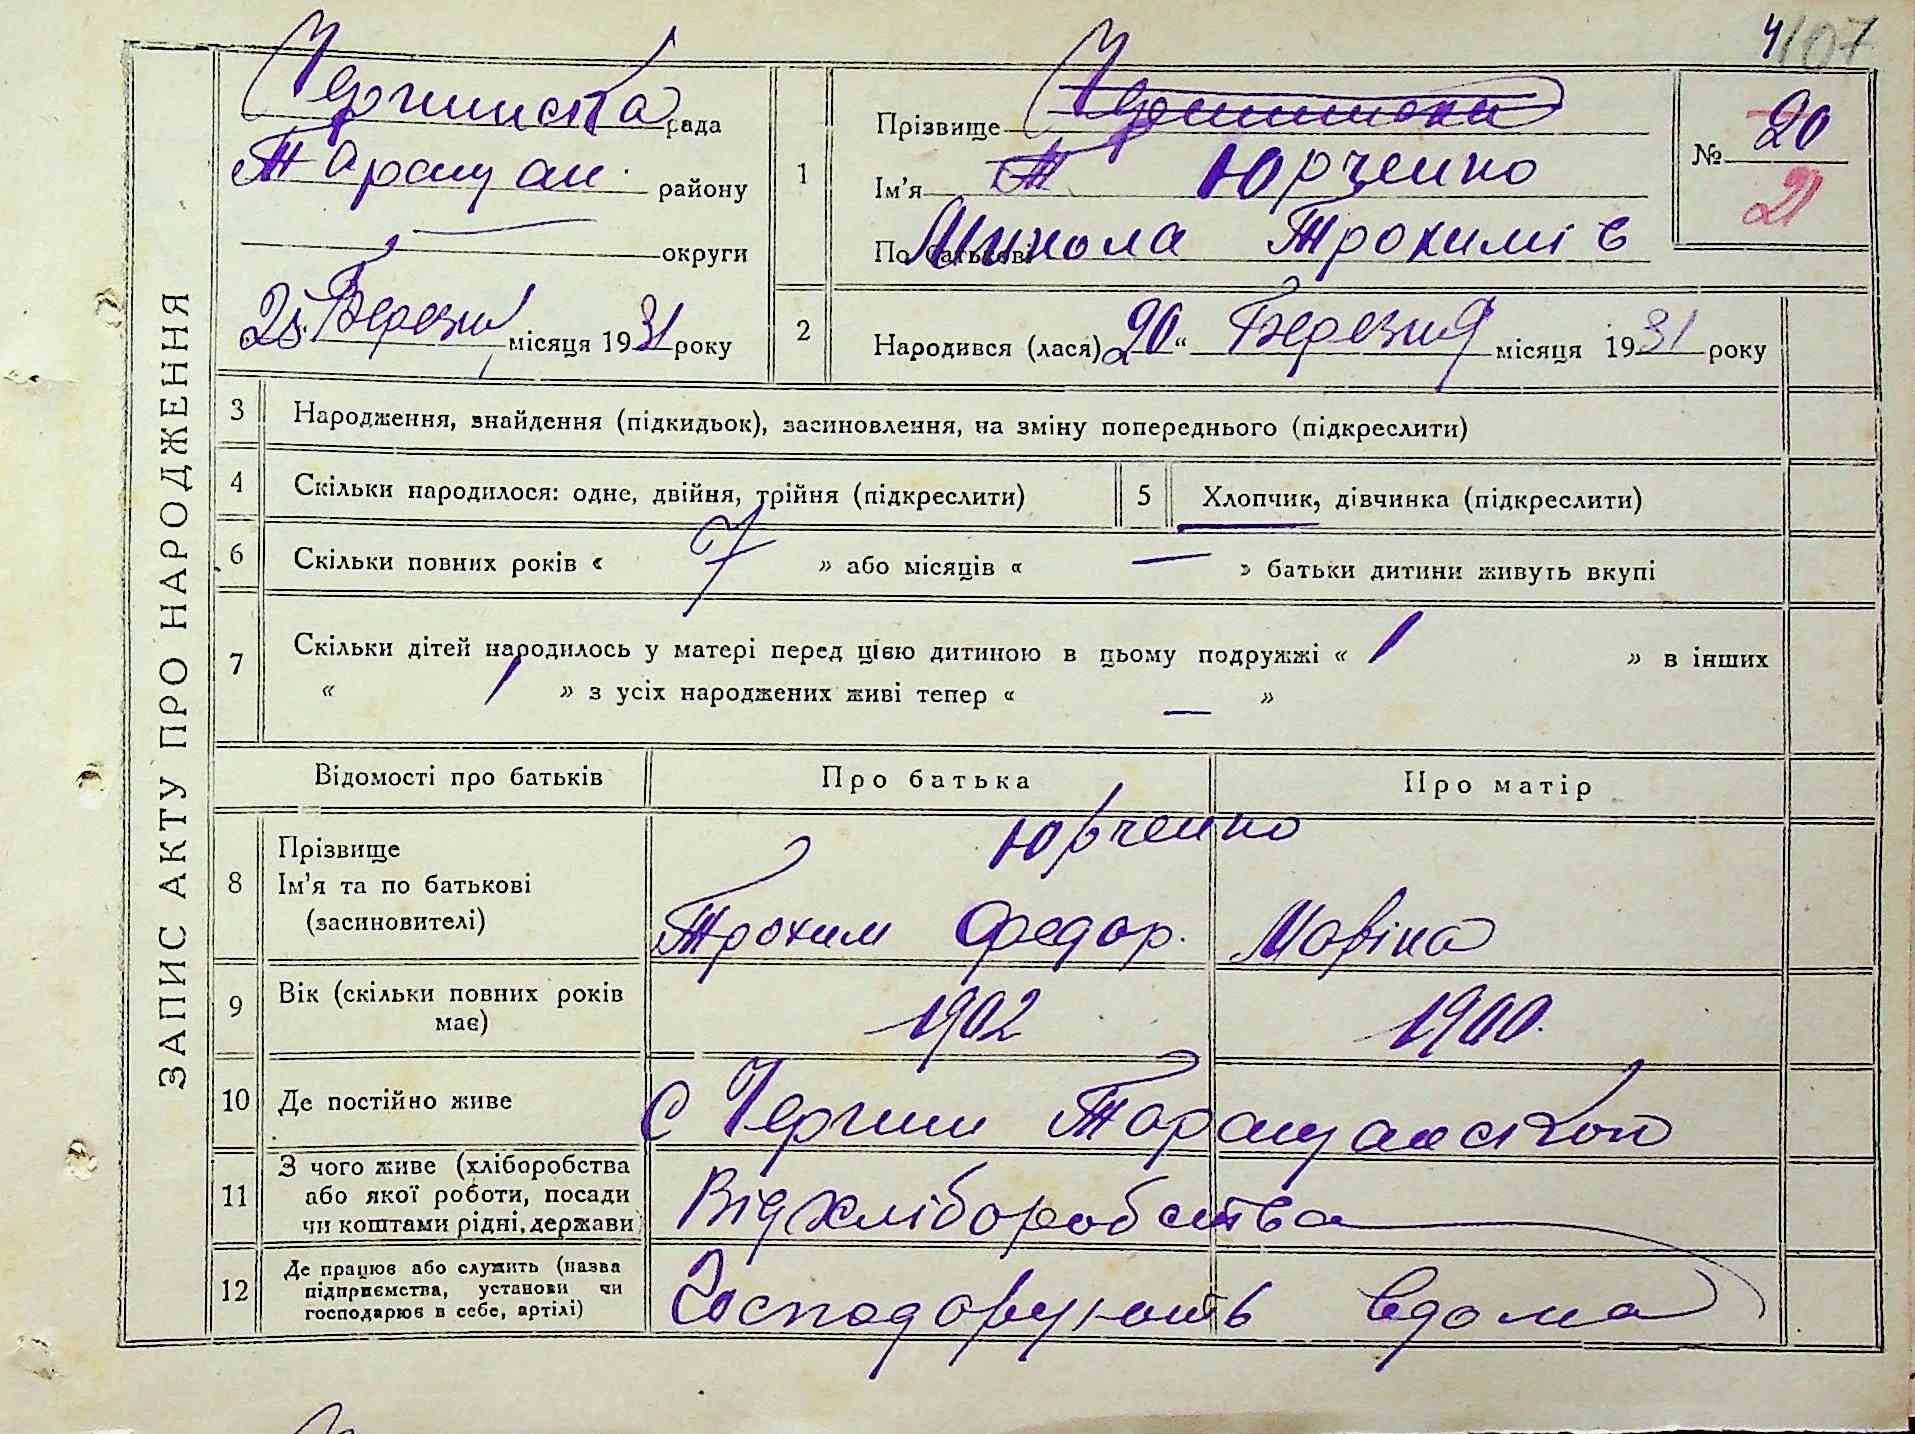 4/107
ЗАПИС АКТУ ПРО НАРОДЖЕННЯ
Чернинська рада
Таращан. району
округи
25 Березня місяця 1931 року
1
Прізвище
Ім'я Юрченко
По батькові Микола Трохимів
№ 20
21
2
Народився (лася) 20 “ Березня місяця 1931 року
3 Народження, знайдення (підкидьок), засиновлення, на зміну попереднього (підкреслити)
4 Скільки народилося: одне, двійня, трійня (підкреслити)
5 Хлопчик, дівчинка (підкреслити)
6 Скільки повних років « 7 » або місяців « — » батьки дитини живуть вкупі
7 Скільки дітей народилось у матері перед цією дитиною в цьому подружжі « 1 » в інших
« 1 » з усіх народжених живі тепер « — »
Відомості про батьків Про батька Про матір
8 Прізвище
Ім'я та по батькові
(засиновителі)
Юрченко
Трохим Федор. Мавіна
9 Вік (скільки повних років
має)
1902 1900.
10 Де постійно живе
с Чернин Таращанського
11 З чого живе (хліборобства
або якої роботи, посади
чи коштами рідні, держави)
Від хліборобства
12 Де працює або служить (назва
підприємства, установи чи
господарює в себе, артілі)
Господорують вдома